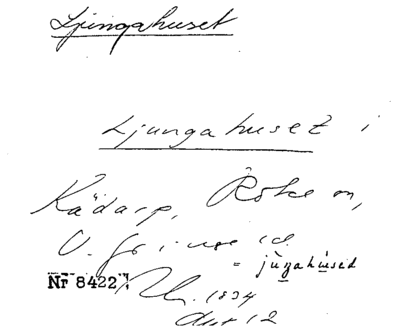 Ljungahuset
Ljungahuset i
Kädarp, Röke sn,
V. Göinge hd.
= juŋahused
Nr 8422
1934
12